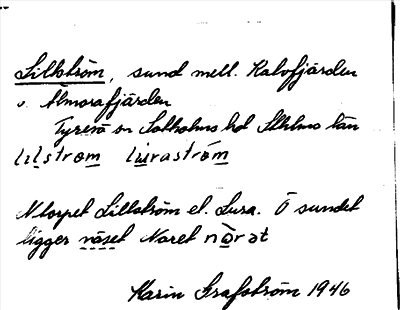 Lillström, sund mell. Kalvfjärden
o. Älmorafjärden
Tyresö sn Sotholms hd Sthlms län
lilstrɵm luraström
N torpet Lillström el. Lura. Ö sundet
ligger näset Noret nòrət
Karin Grafström 1946